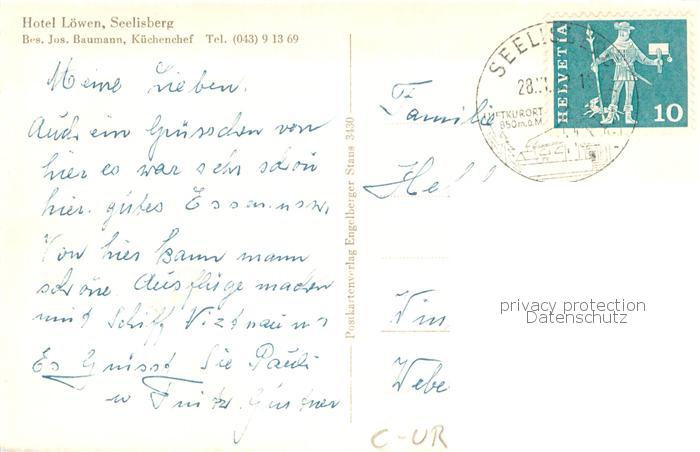 Hotel Löwen, Seelisberg
Bes. Jos. Baumann, Küchenchef Tel. (043) 9 13 69
Meine Lieben.
Auch ein Grüsschen von
hier es war sehr schön
hier. gutes Essen usw.
Von hier kann mann
schöne Ausflüge machen
mit Schiff Vitznau us
Es Grüsst Sie Pauli
u Fritz. Gürtner
Postkartenverlag Engelberger Stans 3430
Familie
Hel
Win
Webe
C-UR
SEELIS
28.
LUFTKURORT
850 m.ü.M.
HELVETIA
10
privacy protection
Datenschutz